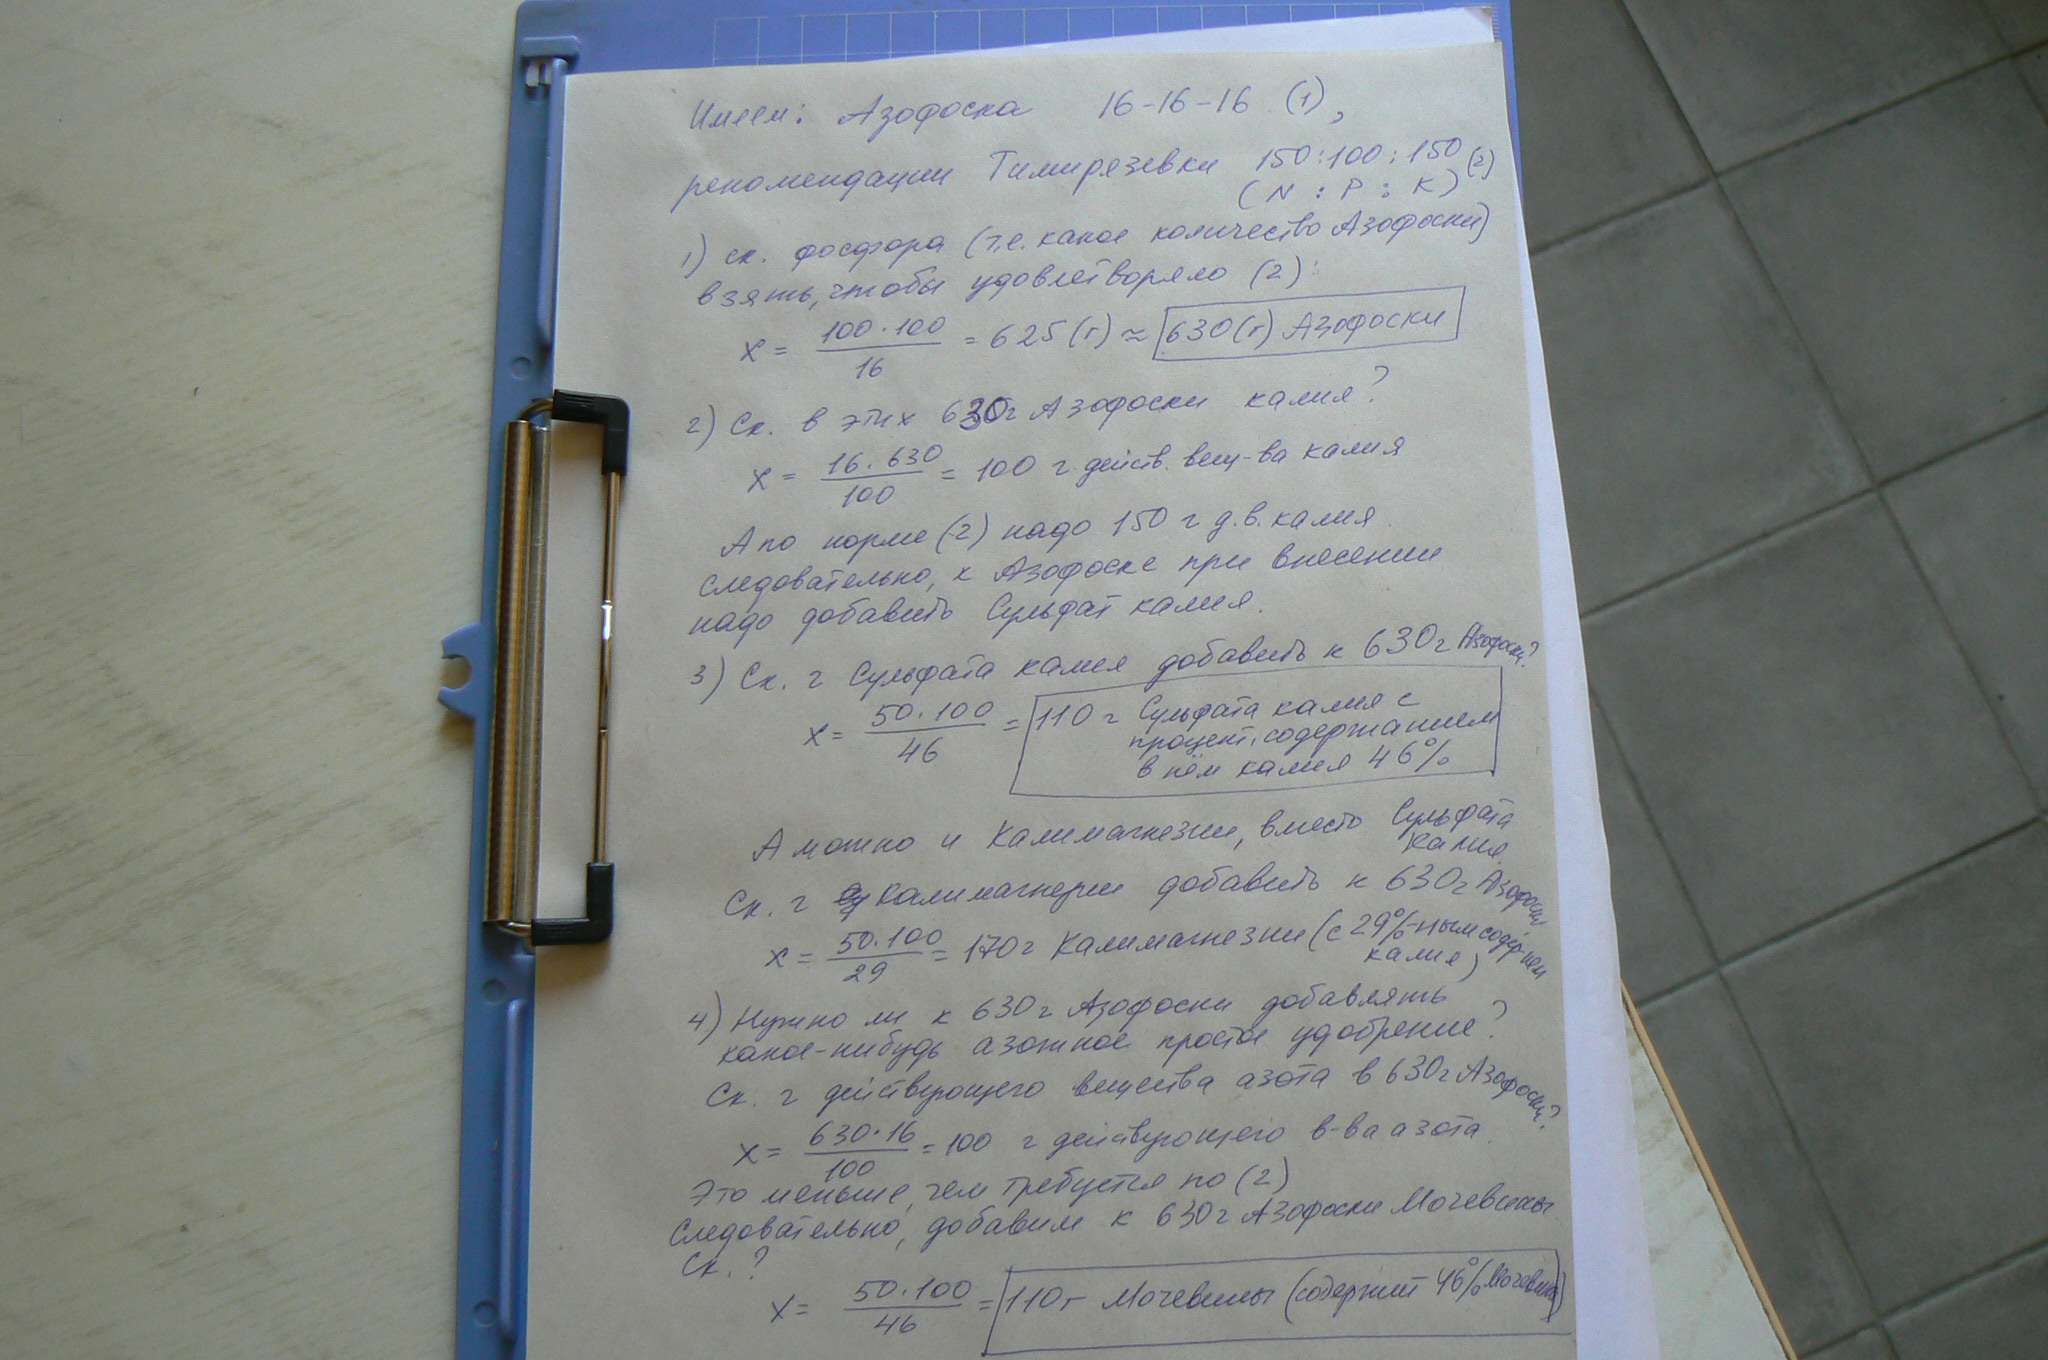 Имеем: Азофоска 16-16-16 (1),
рекомендации Тимирязевки 150:100:150 (2)
(N : P : K)
1) ск. фосфора (т.е. какое количество Азофоски)
взять, чтобы удовлетворяло (2):
x = 100·100 / 16 = 625(г) ≈ 630(г) Азофоски
2) Ск. в этих 630г Азофоски калия?
x = 16·630 / 100 = 100 г действ. вещ-ва калия
А по норме (2) надо 150 г д.в. калия.
следовательно, к Азофоске при внесении
надо добавить Сульфат калия.
3) Ск. г Сульфата калия добавить к 630г Азофоски?
x = 50·100 / 46 = 110 г Сульфата калия с
процент. содержанием
в нём калия 46%
А можно и Калимагнезии, вместо Сульфата
калия
Ск. г Калимагнезии добавить к 630г Азофоски
x = 50·100 / 29 = 170г Калимагнезии (с 29%-ным содер-ием
калия)
4) Нужно ли к 630г Азофоски добавлять
какое-нибудь азотное простое удобрение?
Ск. г действующего вещества азота в 630г Азофоски?
x = 630·16 / 100 = 100 г действующего в-ва азота.
Это меньше, чем требуется по (2)
Следовательно, добавим к 630г Азофоски Мочевины
Ск.?
x = 50·100 / 46 = 110г Мочевины (содержит 46% Мочевина)